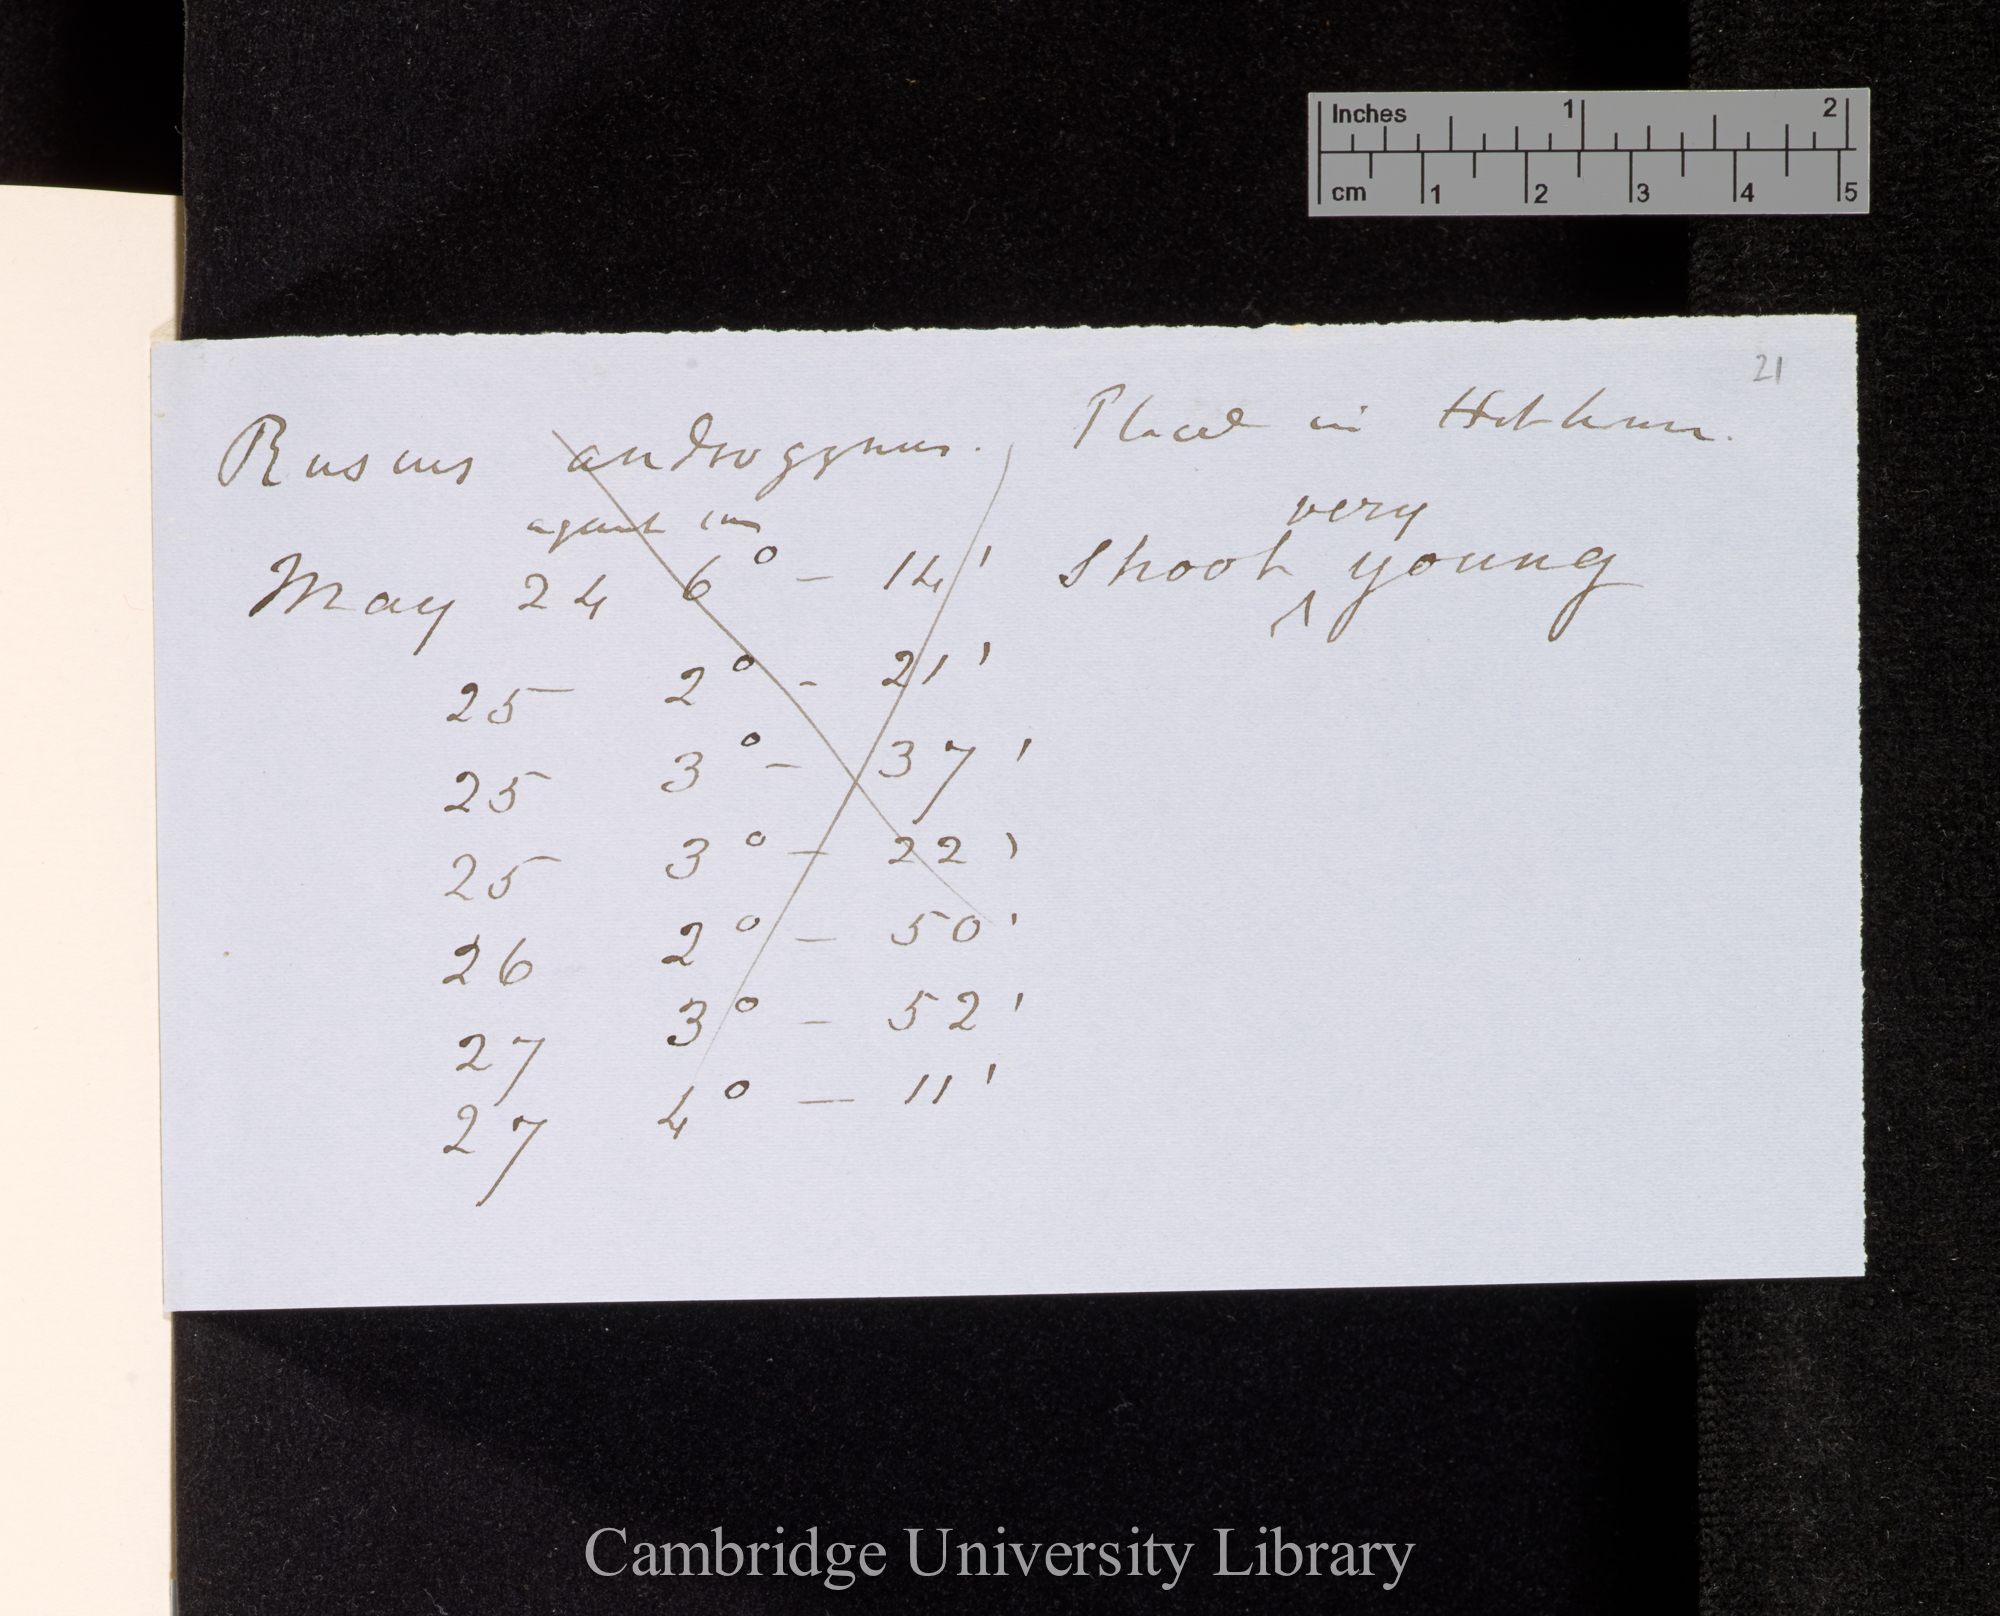 Inches 1 2
cm 1 2 3 4 5
21
Ruscus androgynus. Placed in Hothouse.
against sun
very
May 24 6° – 14' Shoot ^ young
25 2° – 21'
25 3° – 37'
25 3° – 22'
26 2° – 50'
27 3° – 52'
27 4° – 11'
Cambridge University Library